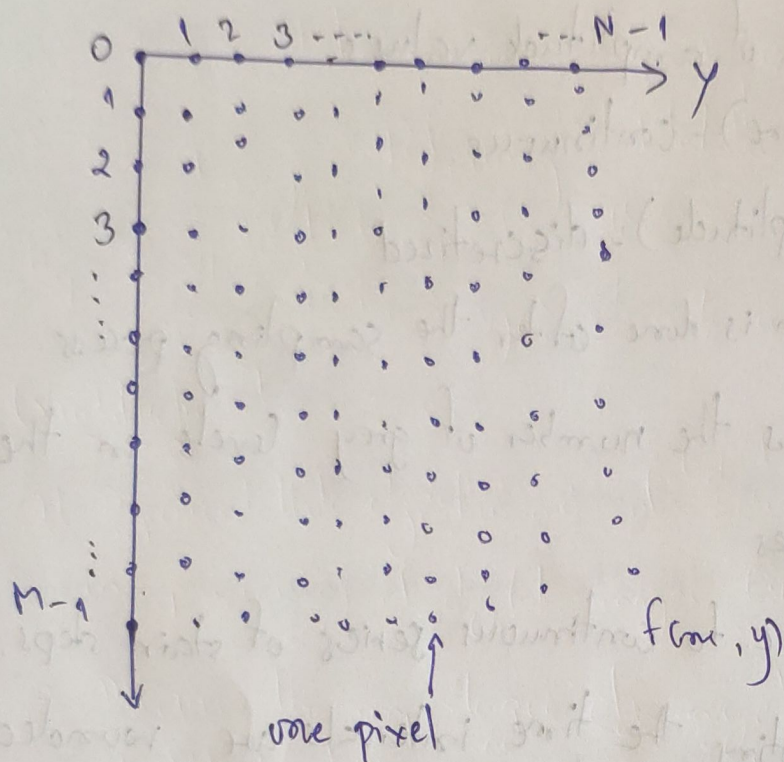 0 1 2 3 ..... .... N-1
y
1
2
3
⋮
⋮
M-1
f(x, y)
one pixel